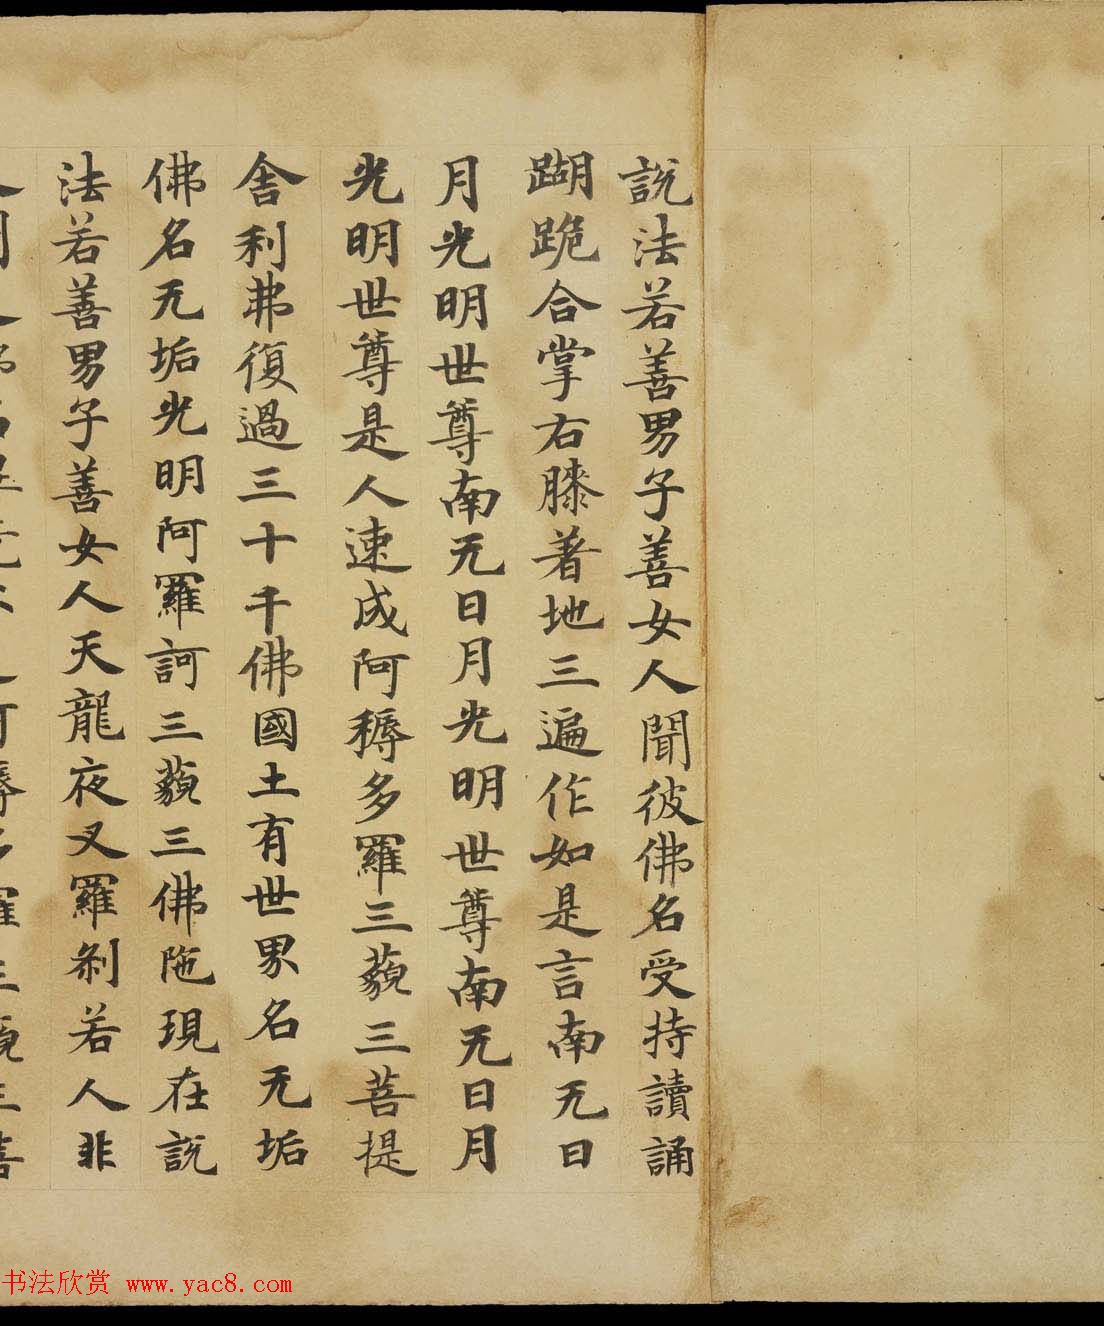 說法若善男子善女人聞彼佛名受持讀誦
蹦跪合掌右膝著地三遍作如是言南无日
月光明世尊南无日月光明世尊南无日月
光明世尊是人速成阿耨多羅三藐三菩提
舍利弗復過三十千佛國土有世界名无垢
佛名无垢光明阿羅訶三藐三佛陁現在說
法若善男子善女人天龍夜叉羅剎若人非
书法欣赏 www.yac8.com